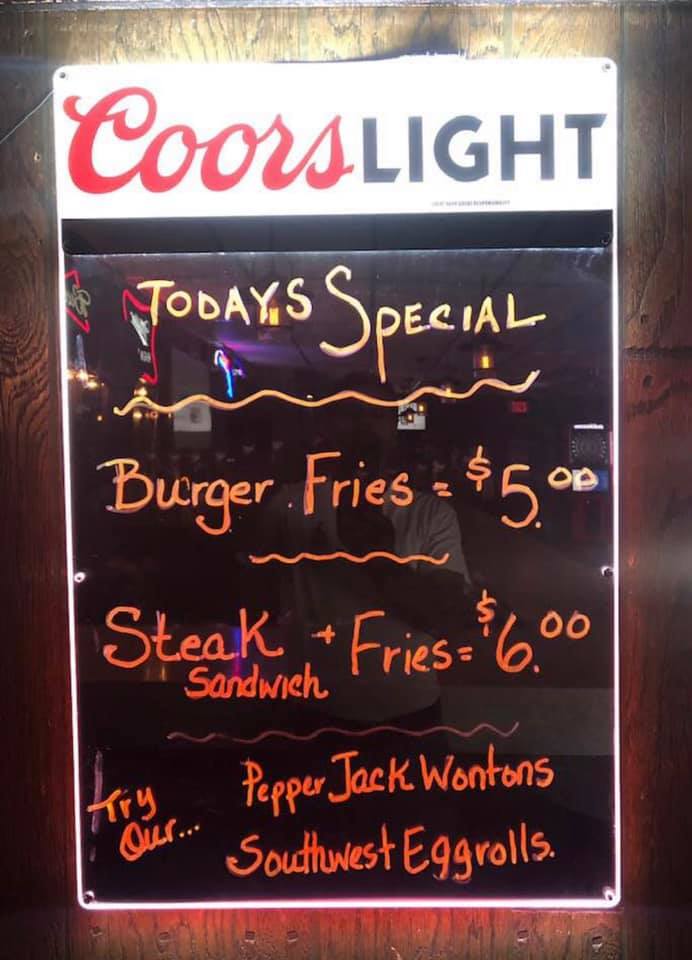 Coors LIGHT
TODAYS SPECIAL
Burger Fries = $5.00
Steak + Fries = $6.00
Sandwich
Try Our... Pepper Jack Wontons
Southwest Eggrolls.